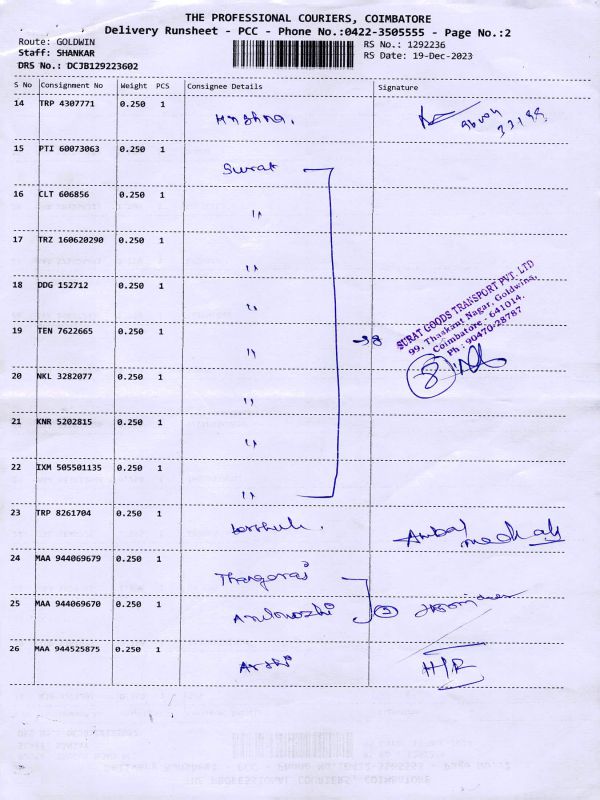 THE PROFESSIONAL COURIERS, COIMBATORE
Delivery Runsheet - PCC - Phone No.:0422-3505555 - Page No.:2
Route: GOLDWIN
RS No.: 1292236
Staff: SHANKAR
RS Date: 19-Dec-2023
DRS No.: DCJB129223602
S No Consignment No Weight PCS Consignee Details Signature
14 TRP 4307771 0.250 1 Krishna.
15 PTI 60073063 0.250 1 Surat
16 CLT 606856 0.250 1 "
17 TRZ 160620290 0.250 1 "
18 DDG 152712 0.250 1 "
19 TEN 7622665 0.250 1 " 8
SURAT GOODS TRANSPORT PVT. LTD
99, Thaakant Nagar, Goldwins,
Coimbatore - 641014.
Ph : 90470-28787
8
20 NKL 3282077 0.250 1 "
21 KNR 5202815 0.250 1 "
22 IXM 505501135 0.250 1 "
23 TRP 8261704 0.250 1 Ambal
24 MAA 944069679 0.250 1 Thangaraj
25 MAA 944069670 0.250 1 2
26 MAA 944525875 0.250 1 H/R